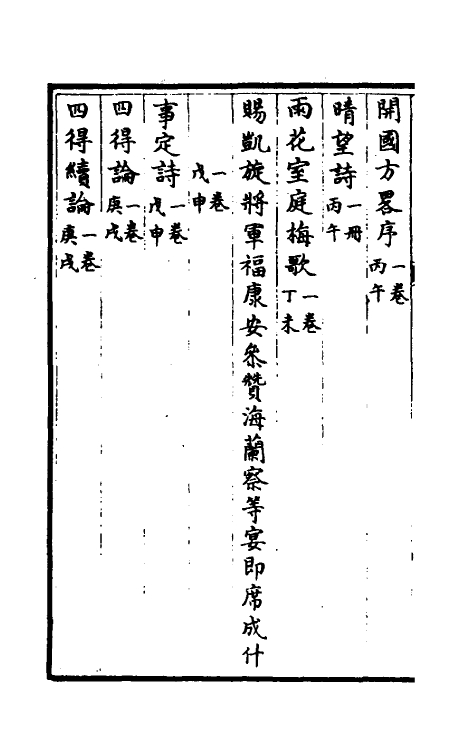 開國方畧序一卷丙午
晴望詩一冊丙午
雨花室庭梅歌一卷丁未
賜凱旋將軍福康安叅贊海蘭察等宴即席成什
一卷戊申
事定詩一卷戊申
四得論一卷庚戌
四得續論一卷庚戌